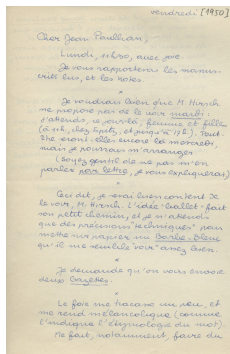 vendredi [1950]
Cher Jean Paulhan,
Lundi, 16h30, avec joie.
Je vous rapporterai les manus-
crits lus, et les notes.
*
Je voudrais bien que M. Hirsch
me propose par le voir mardi :
j'attends, ce jour-là, femme et fille
(à 16h. chez Liptz, et jusqu'à 17h.). Peut-
être iront-elles encore là mercredi,
mais je pourrais m'arranger.
(Soyez gentil de ne pas m'en
parler par lettre, je vous expliquerai)
*
Ceci dit, je serai bien content de
le voir, M. Hirsch. L'idée "ballet" fait
son petit chemin, et je n'attends
que des précisions "techniques" pour
mettre sur papier un Barbe-Bleue
qu'il me semble "voir" assez bien.
*
Je demande qu'on vous envoie
deux Gazettes.
*
Le foie me tracasse un peu, et
me rend mélancolique (comme
l'indique l'étymologie du mot).
Me faut, notamment, faire du